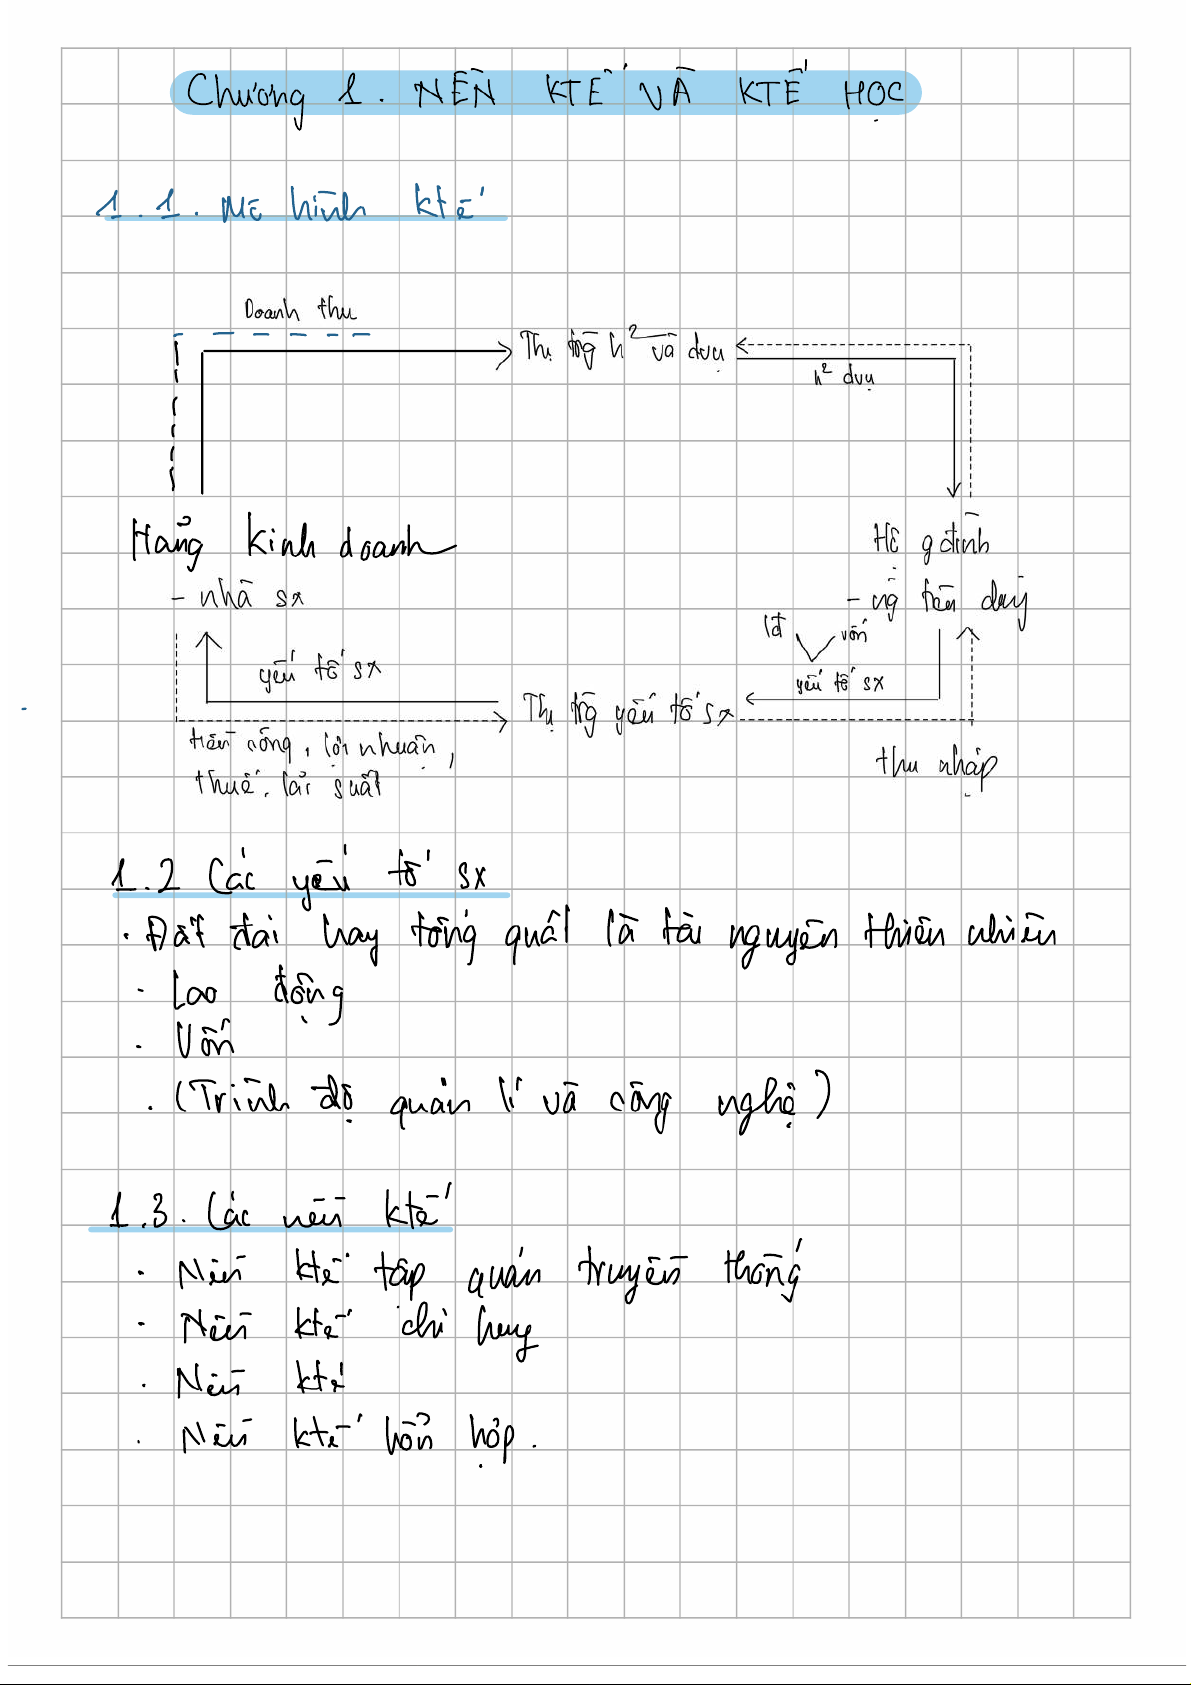 Chương 1. NỀN KTẾ VÀ KTẾ HỌC
1.1. Mô hình ktế
Doanh thu
Thị trg h² và dvụ
h² dvụ
Hãng kinh doanh
Hộ g đình
- nhà sx
- ng tiêu dùng
lđ vốn
yếu tố sx
yếu tố sx
Thị trg yếu tố sx
tiền công, lợi nhuận,
thuế, lãi suất
thu nhập
1.2 Các yếu tố sx
· Đất đai hay tổng quát là tài nguyên thiên nhiên
· Lao động
· Vốn
· (Trình độ quản lí và công nghệ)
1.3. Các nền ktế
· Nền ktế tập quán truyền thống
· Nền ktế chỉ huy
· Nền ktế
· Nền ktế hỗn hợp.